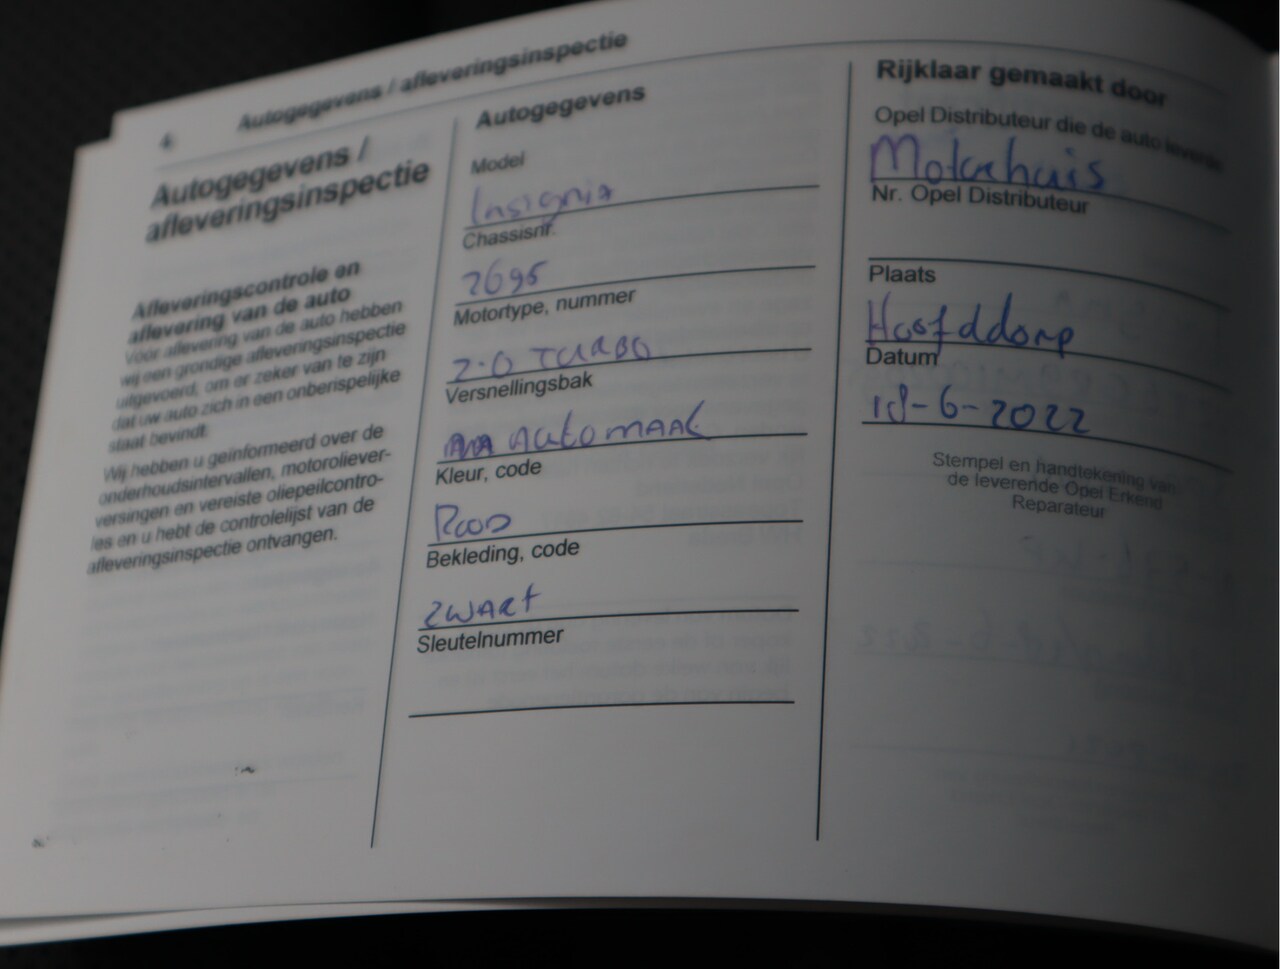 4
Autogegevens / afleveringsinspectie
Autogegevens /
afleveringsinspectie
Afleveringscontrole en
aflevering van de auto
Vóór aflevering van de auto hebben
wij een grondige afleveringsinspectie
uitgevoerd, om er zeker van te zijn
dat uw auto zich in een onberispelijke
staat bevindt.
Wij hebben u geïnformeerd over de
onderhoudsintervallen, motoroliever-
versingen en vereiste oliepeilcontro-
les en u hebt de controlelijst van de
afleveringsinspectie ontvangen.
Autogegevens
Model
Insignia
Chassisnr.
2695
Motortype, nummer
2.0 TURBO
Versnellingsbak
Automaat
Kleur, code
Rood
Bekleding, code
zwart
Sleutelnummer
Rijklaar gemaakt door
Opel Distributeur die de auto leverde
Motorhuis
Nr. Opel Distributeur
Plaats
Hoofddorp
Datum
18-6-2022
Stempel en handtekening van
de leverende Opel Erkend
Reparateur